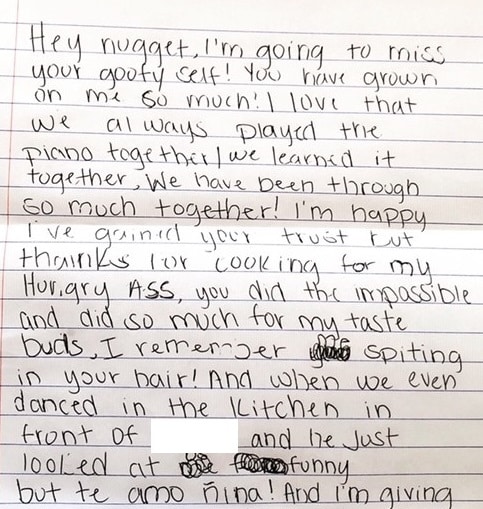 Hey nugget, I'm going to miss
your goofy self! You have grown
on me so much! I love that
we always played the
piano together / we learned it
together, We have been through
so much together! I'm happy
I've gained your trust but
thainks for cooking for my
Hungry ASS, you did the impassible
and did so much for my taste
buds, I remember spiting
in your hair! And when we even
danced in the kitchen in
front of and he just
looked at funny
but te amo ñina! And I'm giving